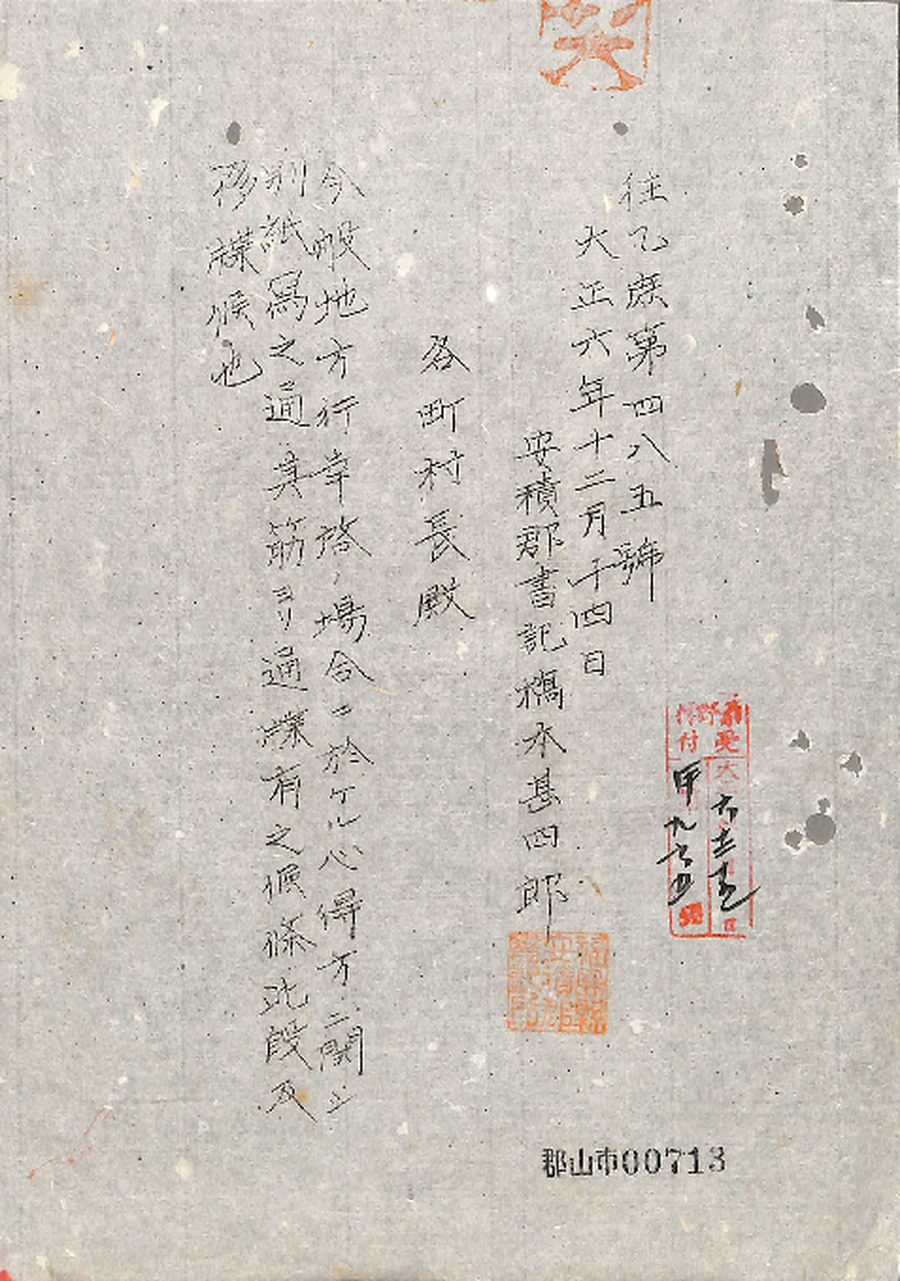 往乙庶第四八五號
大正六年十二月十四日
安積郡書記橋本甚四郎
各町村長殿
今般地方行幸啓ノ場合ニ於ケル心得方ニ関シ
別紙寫之通其筋ヨリ通牒有之候條此段及
移牒候也
受付
大六
甲九
郡山市00713